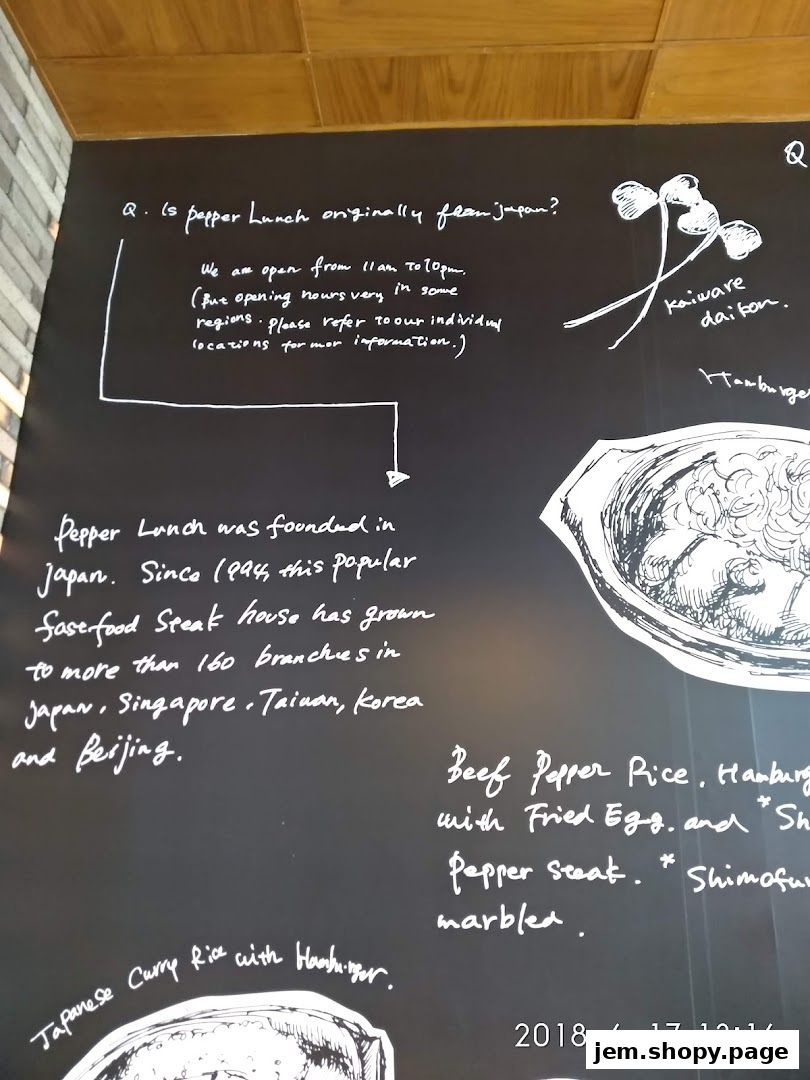 Q
Q. Is pepper Lunch originally from japan?
We are open from 11am To 10pm.
(But opening hours very in some
regions. Please refer to our individual
locations for mor information.)
Kaiware
daikon.
Hamburger
Pepper Lunch was founded in
Japan. Since 1994, this popular
fastfood Steak house has grown
to more than 160 branches in
Japan, Singapore, Taiwan, Korea
and Beijing.
Beef Pepper Rice. Hamburg
with Fried Egg. and *Sh
Pepper steak. *Shimofu
marbled.
Japanese Curry Rice with Hamburger.
2018
jem.shopy.page